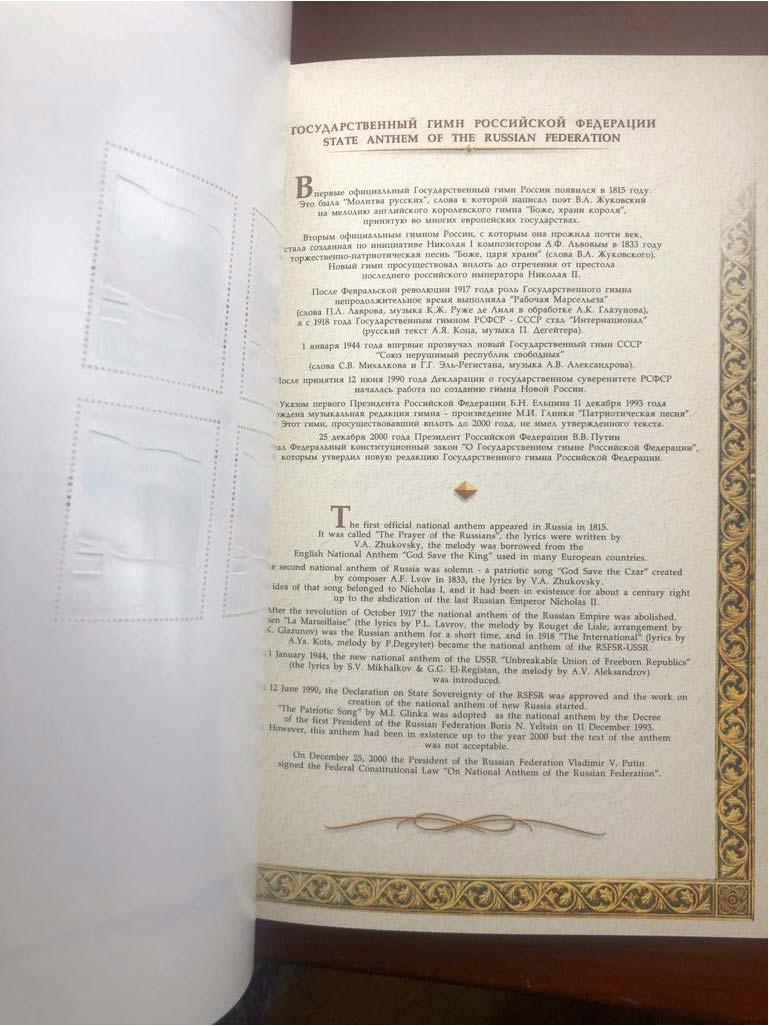 ГОСУДАРСТВЕННЫЙ ГИМН РОССИЙСКОЙ ФЕДЕРАЦИИ
STATE ANTHEM OF THE RUSSIAN FEDERATION
Впервые официальный Государственный гимн России появился в 1815 году.
Это была "Молитва русских", слова к которой написал поэт В.А. Жуковский
на мелодию английского королевского гимна "Боже, храни короля",
принятую во многих европейских государствах.
Вторым официальным гимном России, с которым она прожила почти век,
стала созданная по инициативе Николая I композитором А.Ф. Львовым в 1833 году
торжественно-патриотическая песнь "Боже, царя храни" (слова В.А. Жуковского).
Новый гимн просуществовал вплоть до отречения от престола
последнего российского императора Николая II.
После Февральской революции 1917 года роль Государственного гимна
непродолжительное время выполняла "Рабочая Марсельеза"
(слова П.Л. Лаврова, музыка К.Ж. Руже де Лиля в обработке А.К. Глазунова),
а с 1918 года Государственным гимном РСФСР - СССР стал "Интернационал"
(русский текст А.Я. Коца, музыка П. Дегейтера).
1 января 1944 года впервые прозвучал новый Государственный гимн СССР
"Союз нерушимый республик свободных"
(слова С.В. Михалкова и Г.Г. Эль-Регистана, музыка А.В. Александрова).
После принятия 12 июня 1990 года Декларации о государственном суверенитете РСФСР
началась работа по созданию гимна Новой России.
Указом первого Президента Российской Федерации Б.Н. Ельцина 11 декабря 1993 года
музыкальная редакция гимна - произведение М.И. Глинки "Патриотическая песня".
Этот гимн, просуществовавший вплоть до 2000 года, не имел утвержденного текста.
25 декабря 2000 года Президент Российской Федерации В.В. Путин
Федеральный конституционный закон "О Государственном гимне Российской Федерации",
которым утвердил новую редакцию Государственного гимна Российской Федерации.
The first official national anthem appeared in Russia in 1815.
It was called "The Prayer of the Russians", the lyrics were written by
V.A. Zhukovsky, the melody was borrowed from the
English National Anthem "God Save the King" used in many European countries.
second national anthem of Russia was solemn - a patriotic song "God Save the Czar" created
by composer A.F. Lvov in 1833, the lyrics by V.A. Zhukovsky.
idea of that song belonged to Nicholas I, and it had been in existence for about a century right
up to the abdication of the last Russian Emperor Nicholas II.
After the revolution of October 1917 the national anthem of the Russian Empire was abolished.
"La Marseillaise" (the lyrics by P.L. Lavrov, the melody by Rouget de Lisle, arrangement by
K. Glazunov) was the Russian anthem for a short time, and in 1918 "The International" (lyrics by
A.Ya. Kots, melody by P.Degeyter) became the national anthem of the RSFSR-USSR.
1 January 1944, the new national anthem of the USSR "Unbreakable Union of Freeborn Republics"
(the lyrics by S.V. Mikhalkov & G.G. El-Registan, the melody by A.V. Aleksandrov)
was introduced.
12 June 1990, the Declaration on State Sovereignty of the RSFSR was approved and the work on
creation of the national anthem of new Russia started.
"The Patriotic Song" by M.I. Glinka was adopted as the national anthem by the Decree
of the first President of the Russian Federation Boris N. Yeltsin on 11 December 1993.
However, this anthem had been in existence up to the year 2000 but the text of the anthem
was not acceptable.
On December 25, 2000 the President of the Russian Federation Vladimir V. Putin
signed the Federal Constitutional Law "On National Anthem of the Russian Federation".